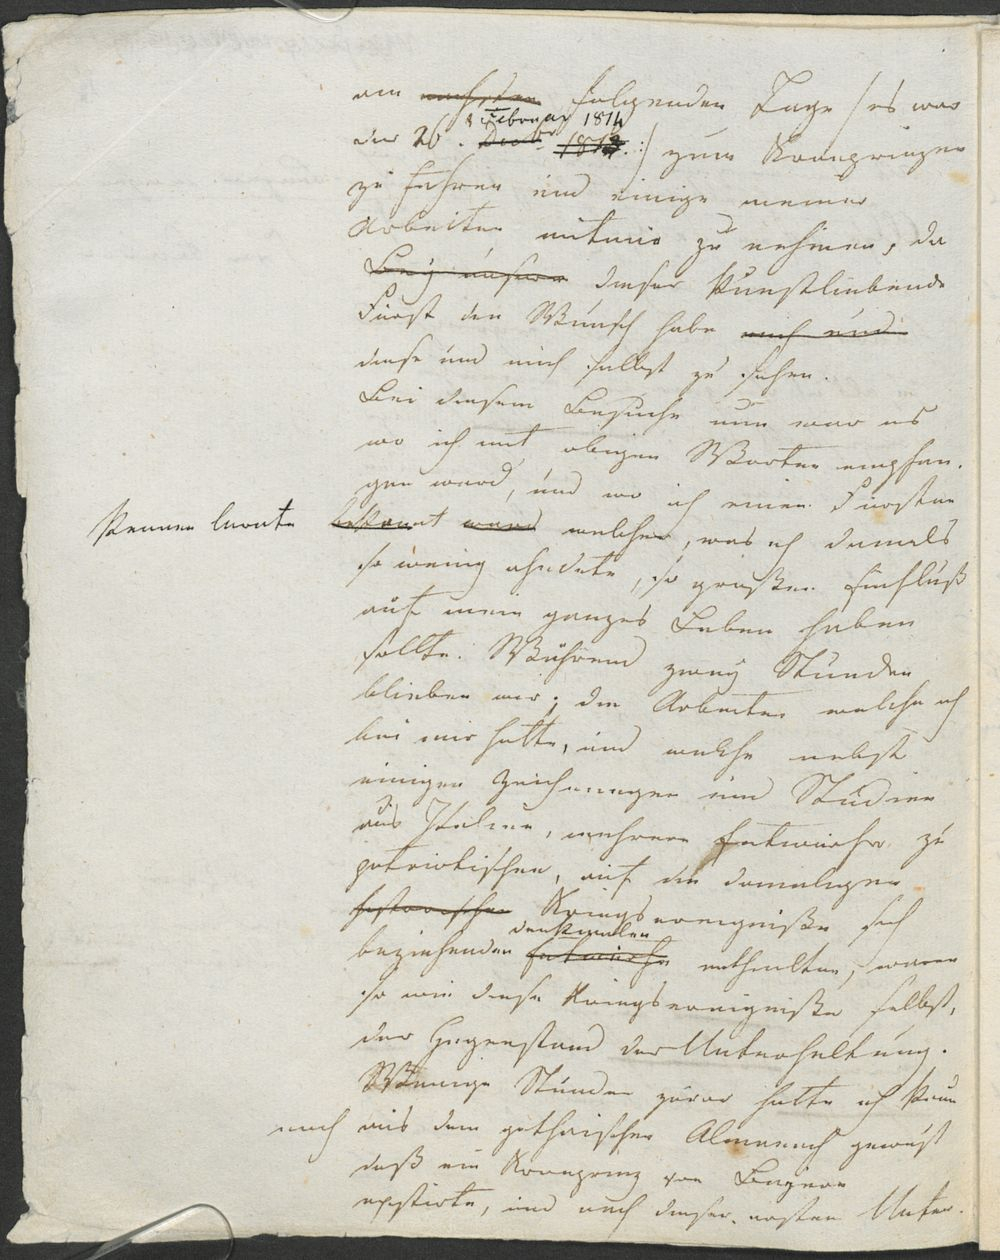 am nächsten folgenden Tage /: es war
Februar 1814
der 26. Decbr 1813. :/ zum Kronprinzen
zu fahren und einige meiner
Arbeiten mit mir zu nehmen, da
Bey unserm dieser kunstliebende
Fürst den Wunsch habe mich und
diese und mich selbst zu sehen.
Bei diesem Besuche nun war es
wo ich mit obigen Worten empfan-
gen ward, und wo ich einen Fürsten
kennen lernte bekannt ward welcher, was ich damals
so wenig ahndete, so großen Einfluß
auf mein ganzes Leben haben
sollte. Während zwey Stunden
blieben wir; die Arbeiten welche ich
bei mir hatte, und welche nebst
einigen Zeichnungen und Studien
aus Italien, mehrere Entwürfe zu
patriotischen, auf die damaligen
historischen Kriegsereigniße sich
denkmalen
beziehenden Entwürfe enthielten, waren
so wie diese Kriegsereigniße selbst,
der Gegenstand der Unterhaltung.
Wenige Stunden zuvor hatte ich kaum
noch aus dem gothaischen Almanach gewust
daß ein Kronprinz von Bayern
existirte, und nach dieser ersten Unter-